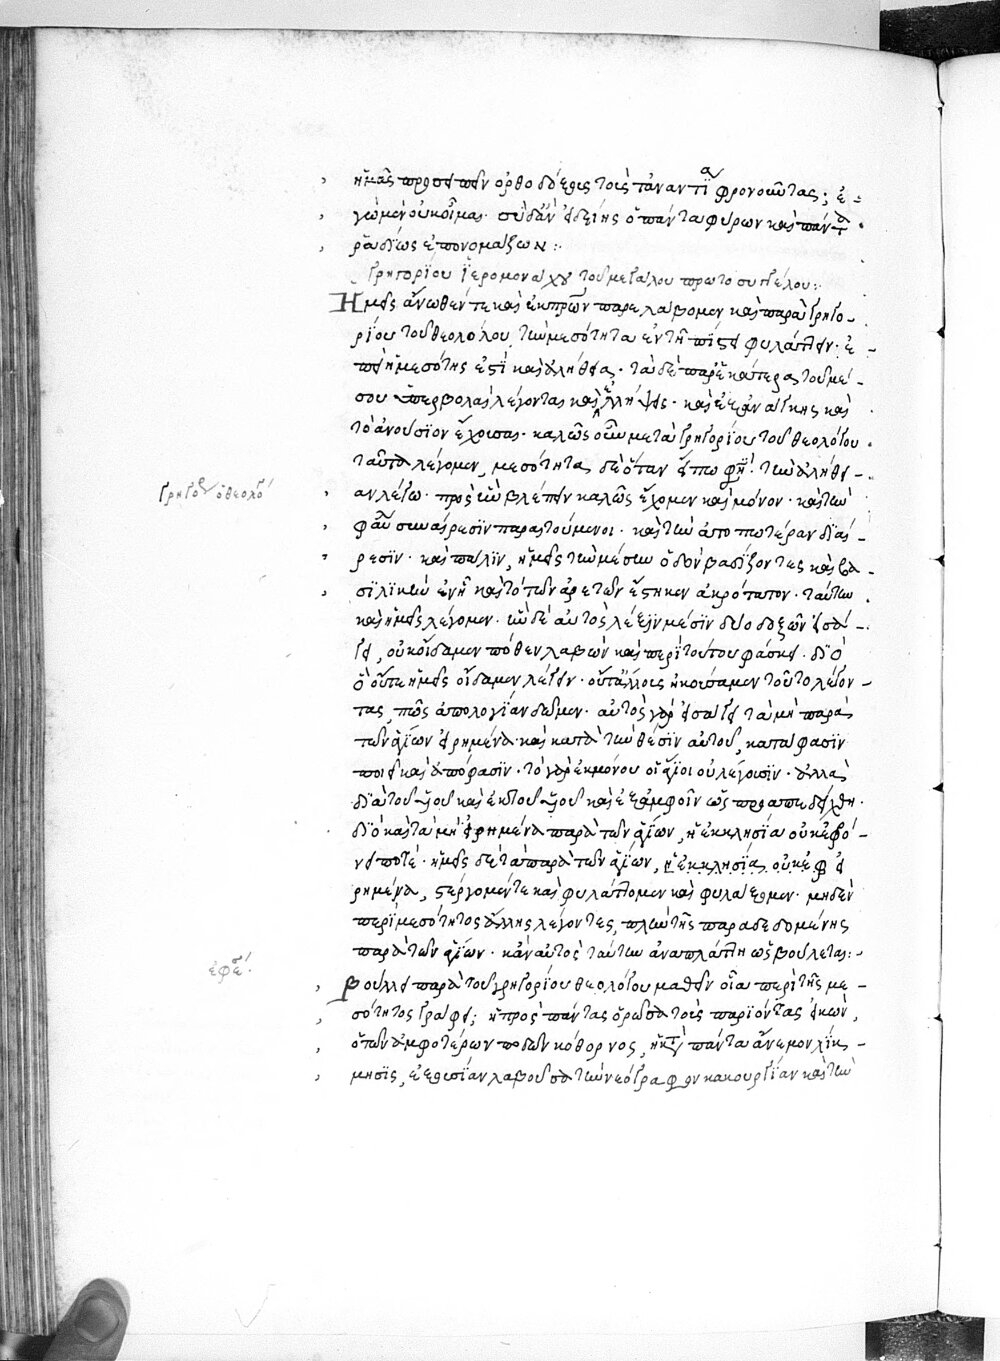 ἡμᾶς προσειπεῖν ὀρθοδόξεις τοὺς τἀναντία φρονοῦντας; ἐ-
γὼ μὲν οὐκ οἶμαι. σὺ δ' ἂν δείξῃς ὁ πάντα φύρων καὶ πάντα
ῥᾳδίως ἐπονομάζων:
Γρηγορίου ἱερομονάχου τοῦ μεγάλου πρωτοσυγγέλου:
Ἡμεῖς ἄνωθέν τε καὶ ἐκ πρῶν παρελάβομεν καὶ παρὰ Γρηγο-
ρίου τοῦ θεολόγου τὴν μεσότητα ἐν τῇ πίστει φυλάττειν. ἐ-
πεὶ ἡ μεσότης ἐστὶ καὶ ἀλήθεια. τὰ δὲ παρ' ἑκάτερα τοῦ μέ-
σου ὑπερβολὰς λέγοντας καὶ ἐλλήψεις. καὶ ἐξ ἀνάγκης καὶ
τὸ ἀνούσιον ἔχοισας. καλῶς οὖν μετὰ Γρηγορίου τοῦ θεολόγου
ταῦτα λέγομεν, μεσότητα δὲ ὅταν εἴπω φησὶ. τὴν ἀλήθει-
Γρηγορ ὁ θεολόγ
αν λέγω. πρὸς ἣν βλέπειν καλῶς ἔχομεν καὶ μόνον. καὶ τὴν
φαύ συναίρεσιν παραιτούμενοι. καὶ τὴν ἀποπωτέραν διαί-
ρεσιν. καὶ πάλιν, ἡμεῖς τὴν μέσην ὁδὸν βαδίζοντες καὶ βα-
σιλικὴν ἐν ᾗ καὶ τὸ τῶν ἀρετῶν ἕστηκεν ἀκρότατον. ταύτην
καὶ ἡμεῖς λέγομεν. ἣν δὲ αὐτὸς λέξιν μέσιν δύο δοξῶν εἰσά-
γει, οὐκ οἴδαμεν πόθεν λαβὼν καὶ περὶ τούτου φάσκει. δι' ὃ
ὃ οὔτε ἡμεῖς οἴδαμεν λέγειν. οὔτ' ἄλλοις ἠκούσαμεν τοῦτο λέγον-
τας, πῶς ἀπολογίαν δῶμεν. αὐτὸς γὰρ εἰσάγει τὰ μὴ παρὰ
τῶν ἁγίων εἰρημένα. καὶ κατὰ τὴν θέσιν αὐτοῦ, κατάφασιν
ποιεῖ καὶ ἀπόφασιν. τὸ γὰρ ἐκ μόνου οἱ ἅγιοι οὐ λέγουσιν. ἀλλὰ
διὰ τοῦ υἱοῦ καὶ ἐκ τοῦ υἱοῦ καὶ ἐξ ἀμφοῖν ὡς προαπεδείχθη.
διὸ καὶ τὰ μὴ εἰρημένα παρὰ τῶν ἁγίων, ἡ ἐκκλησία οὐκ ἐφό-
νει ποτέ. ἡμεῖς δὲ τὰ παρὰ τῶν ἁγίων, ἡ ἐκκλησία οὐκ εφ εἰ
ρημένα, στέργομέν τε καὶ φυλάττομεν καὶ φυλάξομεν. μηδὲν
περὶ μεσότητος ἄλλης λέγοντες, πλὴν τῆς παραδεδομένης
παρὰ τῶν ἁγίων. κἂν αὐτὸς ταύτην ἀναπλάττῃ ὡς βούλεται:
ἐφεσ
Βούλει παρὰ τοῦ Γρηγορίου θεολόγου μαθεῖν οἷα περὶ τῆς με-
σότητος γράφει; ἡ πρὸς πάντας ὁρῶσα τοὺς παριόντας εἰκών,
ὁ τῶν ἀμφοτέρων ποδῶν κόθορνος, ἡ κατὰ πάντα ἄνεμον λίκ-
μησις, ἐξουσίαν λαβοῦσα τὴν νεόγραφον κακουργίαν καὶ τὴν